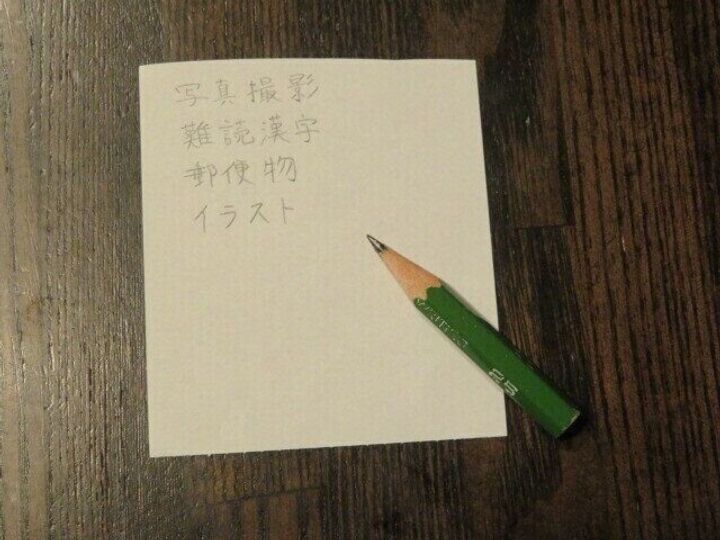 写真撮影
難読漢字
郵便物
イラスト